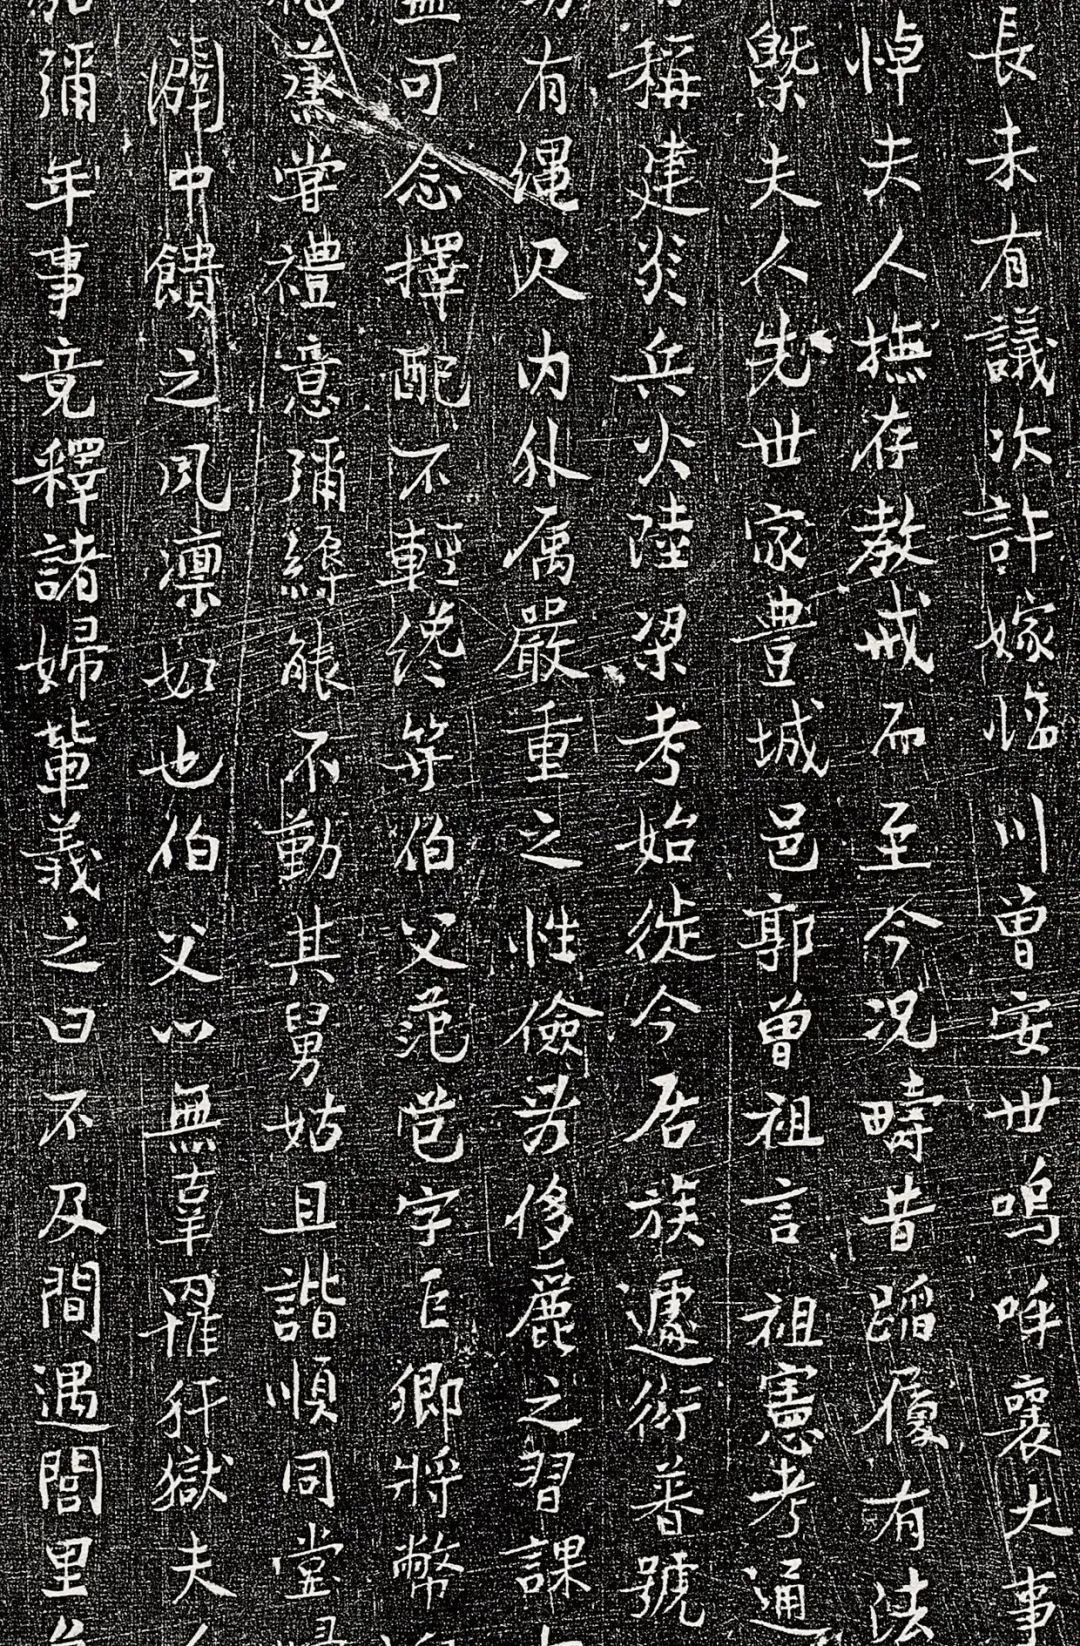 長未有議次許嫁臨川曾安世嗚呼襄大事
悼夫人撫存教戒而至今況疇昔蹈履有法
槩夫人先世家豊城邑郭曾祖言祖憲考通
稱建炎兵火陸梁考始徙今居族遽衍蕃號
有繩尺内外厲嚴重之性儉勞侈麗之習課
可念擇配不輕纔笄伯父范芑字巨卿將幣
蒸嘗禮意彌縫能不動其舅姑且諧順同堂
闢中饋之風凛如也伯父以無辜罹犴獄夫
彌年事竟釋諸婦軰義之曰不及間遇閭里